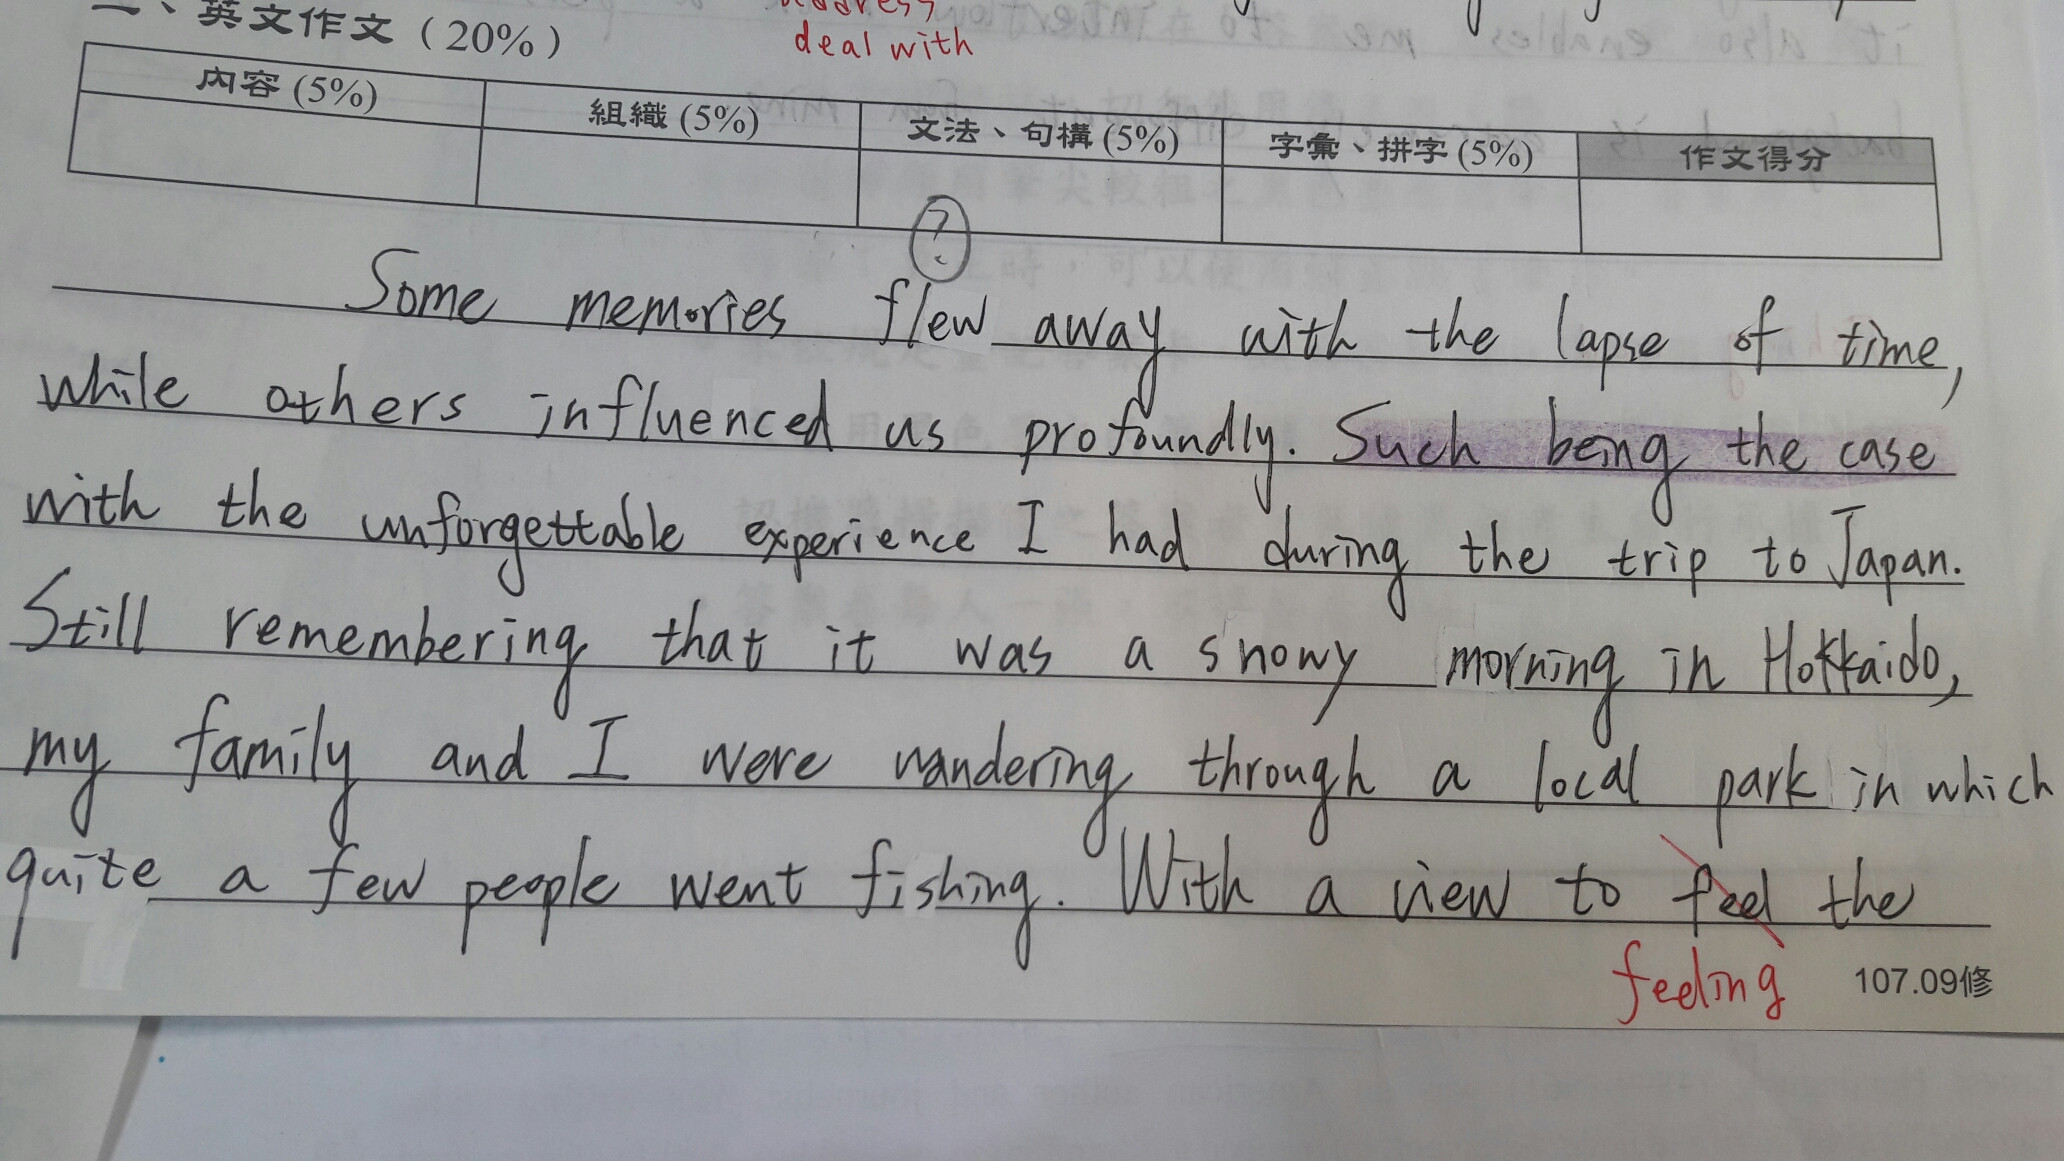 二、英文作文（20%）
address
deal with
內容 (5%) 組織 (5%) 文法、句構 (5%) 字彙、拼字 (5%) 作文得分
?
Some memories flew away with the lapse of time,
while others influenced us profoundly. Such being the case
with the unforgettable experience I had during the trip to Japan.
Still remembering that it was a snowy morning in Hokkaido,
my family and I were wandering through a local park in which
quite a few people went fishing. With a view to feel the
feeling
107.09修